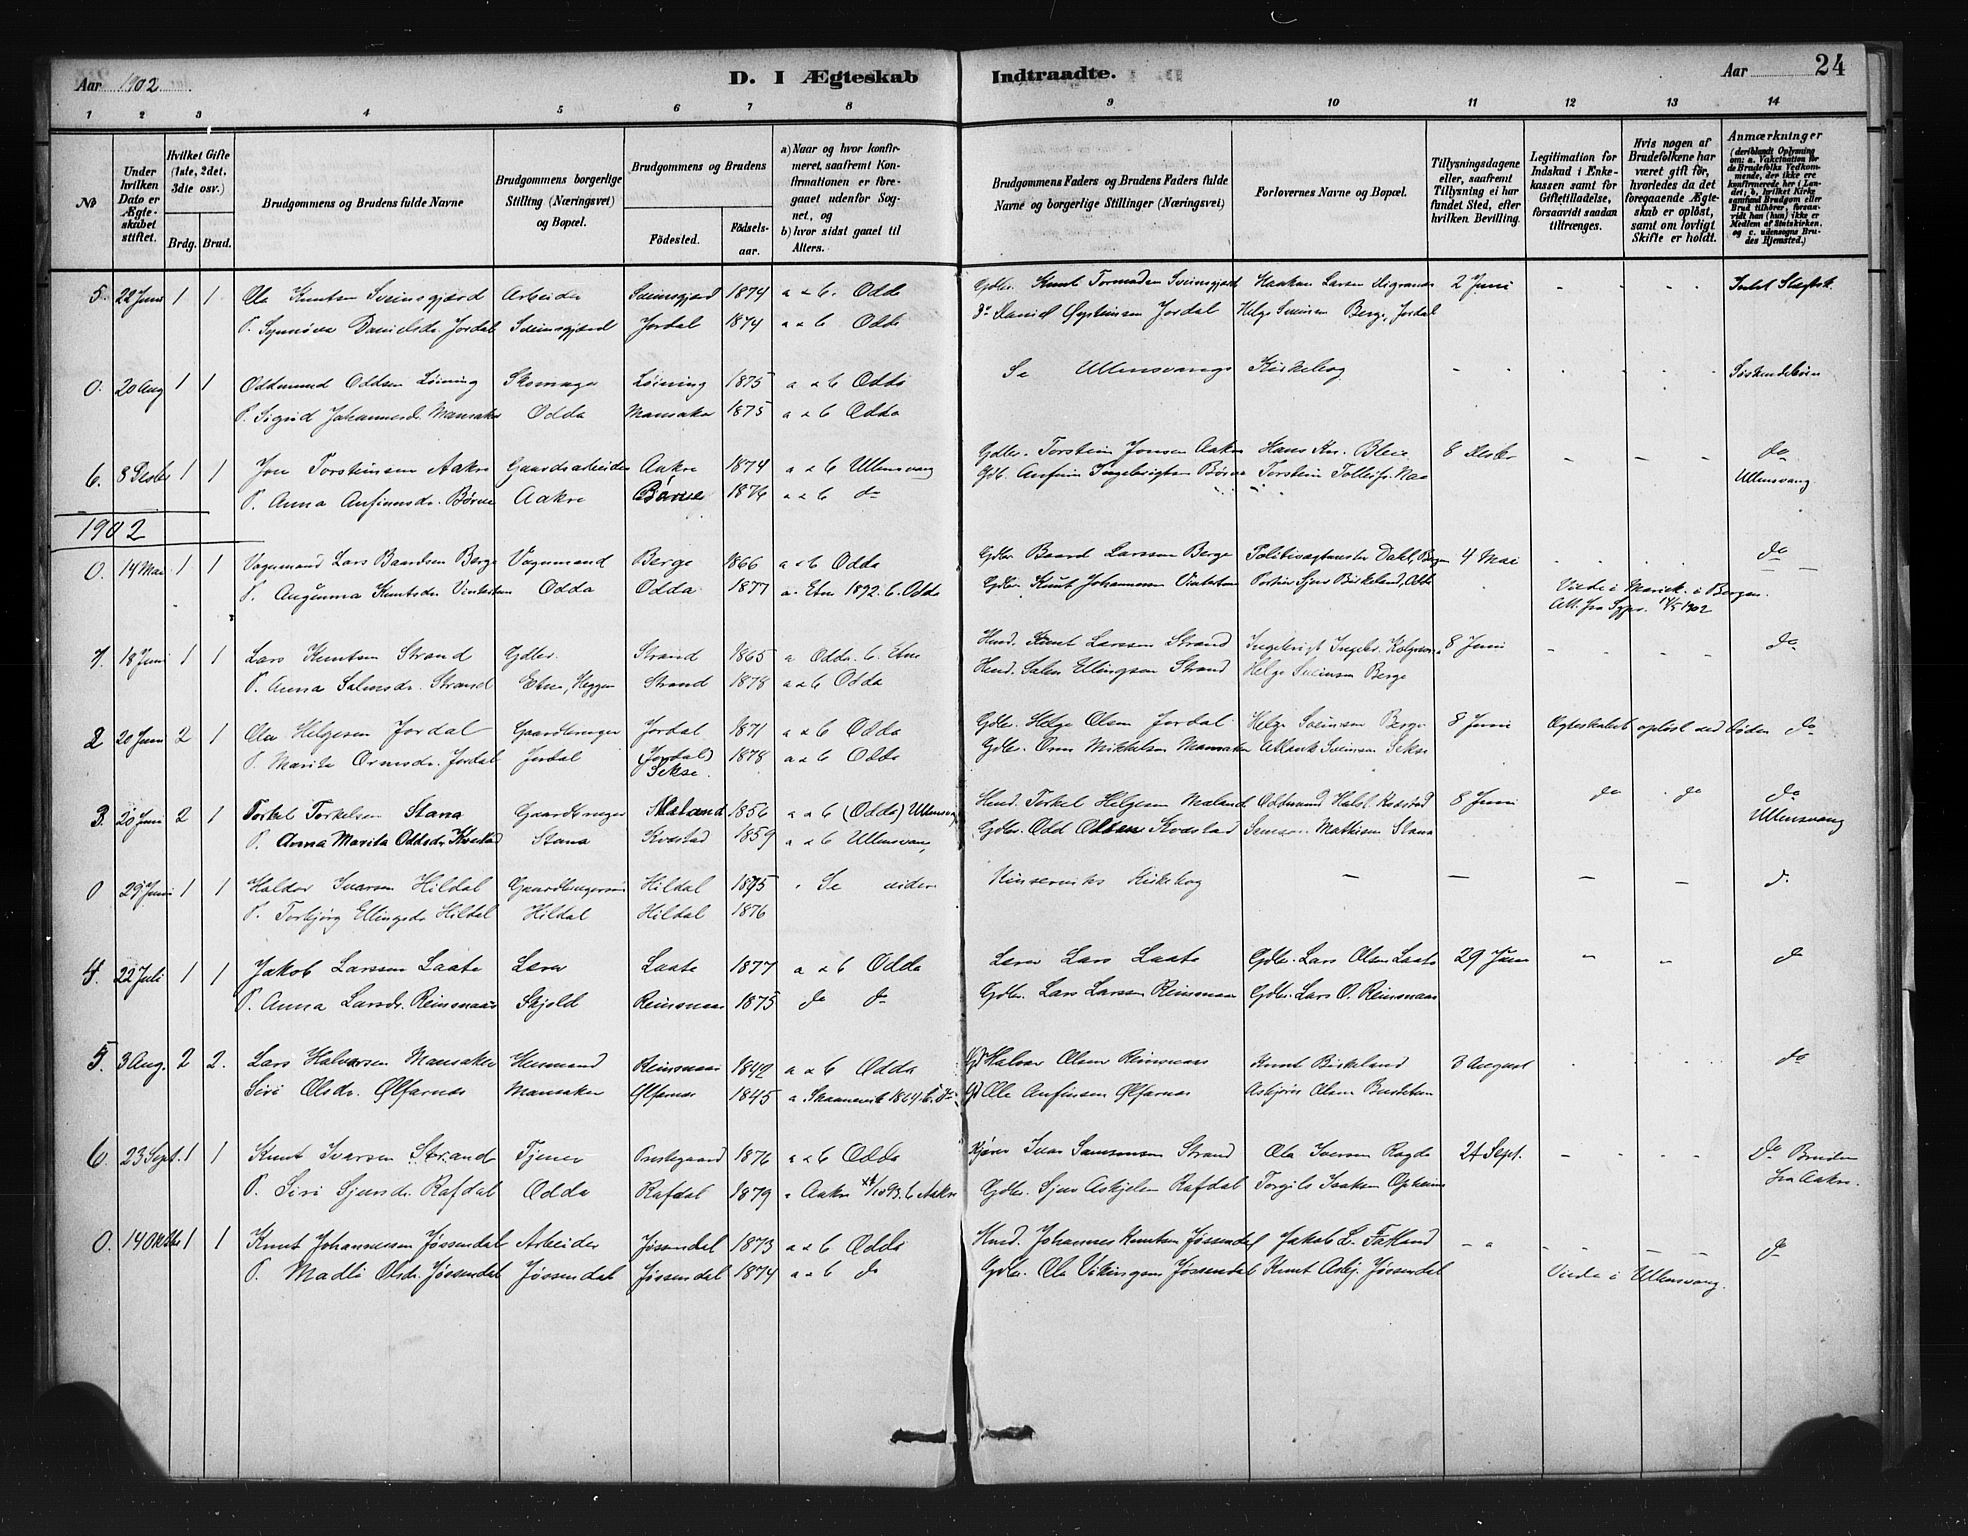 Aar 1902
D. I Ægteskab Indtraadte.
Aar 24
1 2 3 4 5 6 7 8 9 10 11 12 13 14
No
Under hvilken Dato er Ægteskabet stiftet.
Hvilket Gifte (1ste, 2det, 3die osv.)
Brdg. Brud.
Brudgommens og Brudens fulde Navne
Brudgommens borgerlige Stilling (Næringsvei) og Bopæl.
Brudgommens og Brudens
Födested. Födselsaar.
a) Naar og hvor konfirmeret, saafremt Konfirmationen er foregaaet udenfor Sognet, og
b) hvor sidst gaaet til Alters.
Brudgommens Faders og Brudens Faders fulde Navne og borgerlige Stillinger (Næringsvei)
Forlovernes Navne og Bopæl.
Tillysningsdagene eller, saafremt Tillysning ei har fundet Sted, efter hvilken Bevilling.
Legitimation for Indskud i Enkekassen samt for Giftetilladelse, forsaavidt saadan tiltrænges.
Hvis nogen af Brudefolkene har været gift för, hvorledes da det foregaaende Ægteskab er oplöst, samt om lovligt Skifte er holdt.
Anmærkninger (deriblandt Oplysning om: a. Vakcination for de Brudefolks Vedkommende, der ikke ere konfirmerede her i Landet, b. hvilket Kirkesamfund Brudgom eller Brud tilhörer, forsaavidt han (hun) ikke er Medlem af Statskirken, og c. udensogns Brudes Hjemsted.)
5. 22 Juni 1 1 Ola Knutsen Sveinsgjerd Arbeider Sveinsgjerd 1874 a & b Odda Gdbr. Knut Tormodsen Sveinsgjerd Haakon Larsen 2 Juni - - - Intet Slægtsk.
P. Synnöva Danielsdr. Jordal Sveinsgjerd Jordal 1874 a & b Odda do Daniel Øysteinsen Jordal Helge Sveinsen Berge, Jordal
0. 20 Aug 1 1 Oddmund Oddsen Löining Skomager Löining 1875 a & b Odda Se Ullensvangs Kirkebog - - - - Söskendebörn
P. Sigrid Johannesd. Mansaker Odda Mansaker 1875 a & b Odda
6. 8 Desbr 1 1 Jon Torsteinsen Aakre Gaardsarbeider Aakre 1874 a & b Ullensvang Gdbr. Torstein Jonsen Aakre Hans Kn. Bleie 8 Desbr - - - do
P. Anna Anfinnsdr. Börve Aakre Börve 1876 a & b do Gdb. Anfinn Ingebrigtsen Börve Torstein Tollefs. Ullensvang
1902
0. 14 Mai 1 1 Vognmand Lars Baardsen Berge Vognmand Berge 1866 a & b Odda Gdbr Baard Larssen Berge Politivagtmester Dahl, Bergen 4 Mai - - do
P. Augunna Knutsdr. Vintertun Odda Odda 1877 a. Etne 1892. b. Odda Gdbr. Knut Johannessen Vintertun Portier Sjur Birkland, Odda Viede i Mariek. i Bergen.
Att. fra Sgpr. 14/5 1902
1. 18 Juni 1 1 Lars Knutsen Strand Gdbr. Strand 1865 a Odda. b. Etne Husd. Knut Larssen Strand Ingebrigt Ingebr. 8 Juni - - - do
P. Anna Salmsdr. Strand Etne, Heggen Strand 1878 a & b Odda Husd. Salm Ellingsen Strand Helge Sveinsen Berge
2 20 Juni 2 1 Ola Helgesen Jordal Gaardbruger Jordal 1871 a & b Odda Gdbr. Helge Olsen Jordal Helge Sveinsen Berge 8 Juni Ægteskabet oplöst ved Döden do
P. Marita Ormsdr. Jordal Jordal (Jordal) Sekse. 1878 a & b Odda Gdbr. Orm Mikkelsen Mansaker Sveinsen Sekse
3. 20 Juni 2 1 Torkel Torkelsen Stana Gaardbruger Maland 1856 a & b (Odda) Ullensvang Husd. Torkel Helgesen Maland Oddmund Halst. Kvestad 8 Juni do do do
P. Anna Marita Oddsdr. Kvestad Stana Kvestad 1859 a & b Ullensvang Gdbr. Odd Olsen Kvestad Samson Mathisen Stana Ullensvang
0 29 Juni 1 1 Haldor Ivarsen Hildal Gaardbrugersön Hildal 1875 Se videre Kinserviks Kirkebog - - - - do
P. Torbjörg Ellingsdr. Hildal Hildal Hildal 1876
4. 22 Juli 1 1 Jakob Larssen Laate Lærer Laate 1877 a & b Odda Lærer Lars Laate Gdbr. Lars Olsen Laate 29 Juni - - do
P. Anna Larsdr. Reinsnaas Skjold Reinsnaas 1875 do do Gdbr. Lars Larssen Reinsnaas Gdbr. Lars O. Reinsnaas
5. 3 Aug. 2 2. Lars Halvarsen Mansaker Husmand Reinsnaas 1842 a & b Odda Gd Halvar Olsen Reinsnaas Knut Birkland 3 August do
Siri Olsdr. Ølfarnes Mansaker Ølfarnes 1845 a. Skaanevik 1864. b. do Gd Ole Anfinsen Ølfarnes Asbjörn Olsen
6. 23 Sept. 1 1 Knut Ivarsen Strand Tjener Prestegaard 1876 a & b Odda Ivar Samsonsen Strand Ola Iversen Ragde 24 Sept. - - - do Bruden
P. Siri Sjursdr. Rafdal Odda Rafdal 1879 a Aakre 93. b Aakre Gdbr. Sjur Askjelsen Rafdal Torgils Isaksen Opheim fra Aakre.
0. 14 Oktbr 1 1 Knut Johannessen Jössendal Arbeider Jössendal 1873 a & b Odda Husd. Johannes Knutsen Jössendal Jakob L. Fatland - - - - do
P. Madli Olsdr. Jössendal Jössendal Jössendal 1874 a & b do Gdbr. Ola Vikingsen Jössendal Knut Asbj. Jössendal Viede i Ullensvang.